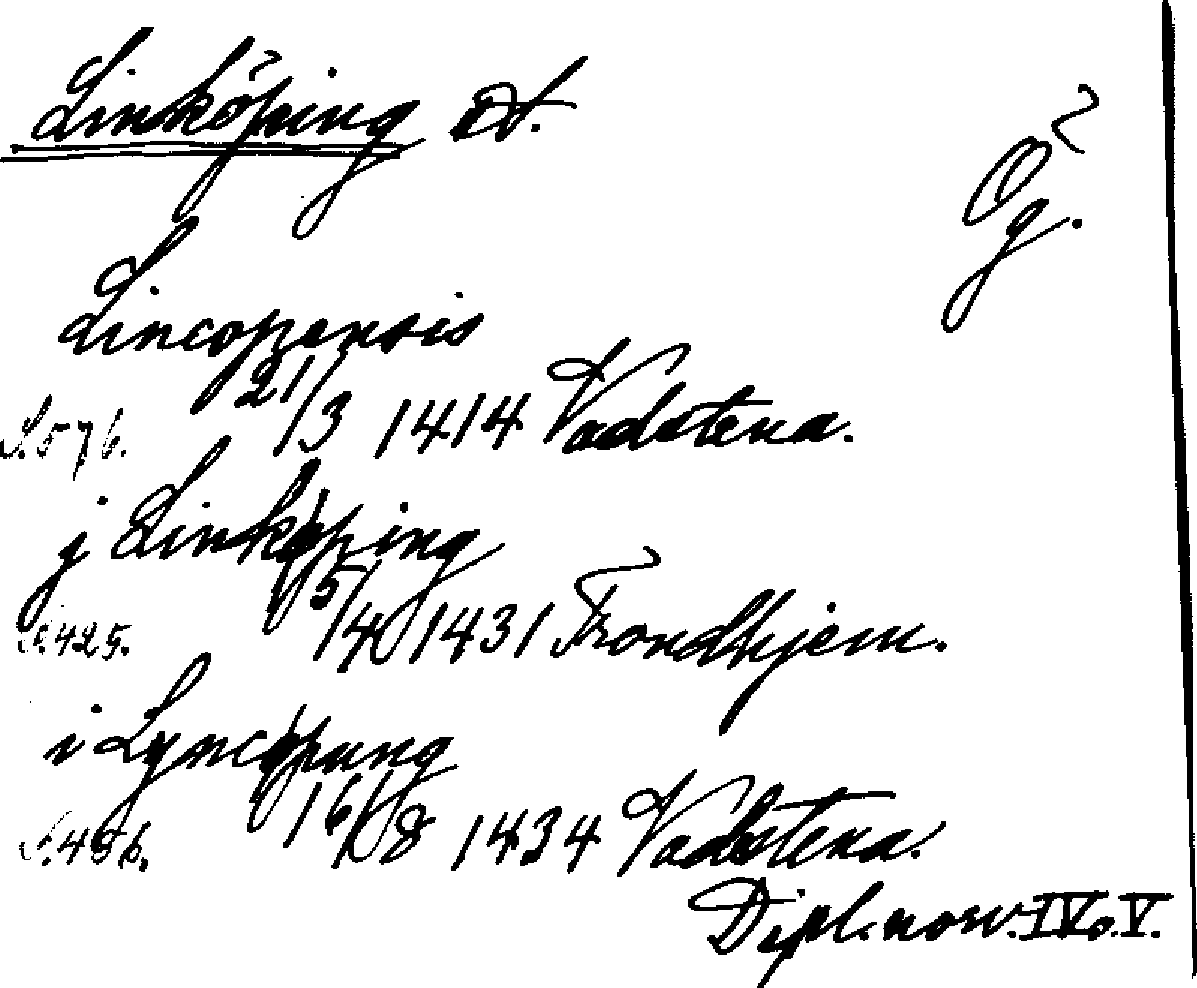 Linköping st.
Ög.
Lincopensis
S. 576. 21/3 1414 Vadstena.
j Linkøping
S. 425. 5/4 1431 Trondhjem.
i Lyncøpung
S. 456. 16/8 1434 Vadstena.
Dipl. norv. IV o. V.